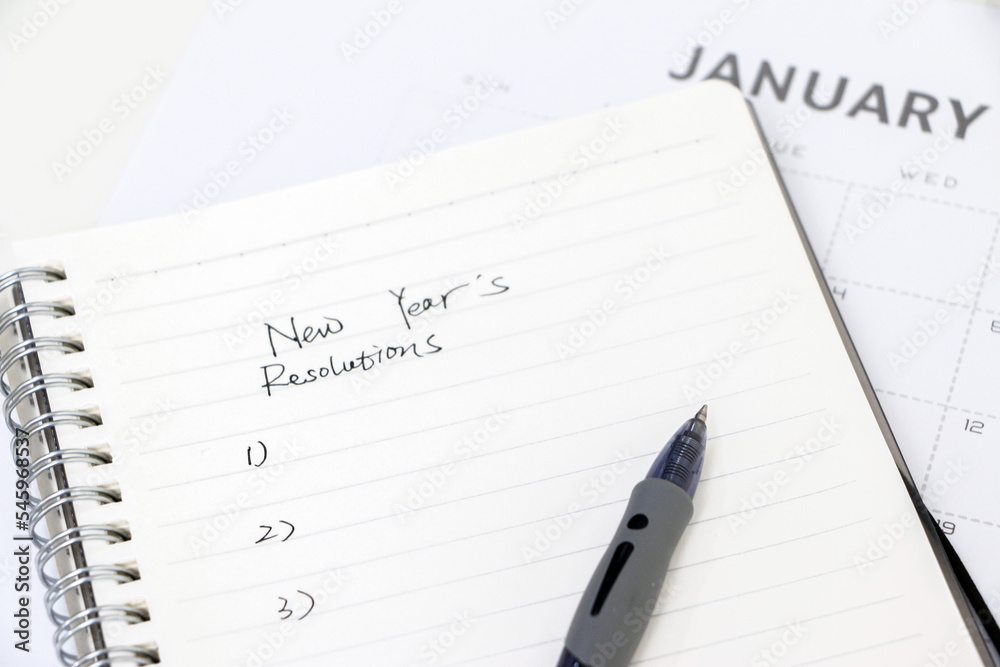 JANUARY
TUE WED
4
5
12
19
New Year's
Resolutions
1)
2)
3)
Adobe Stock | #545968537